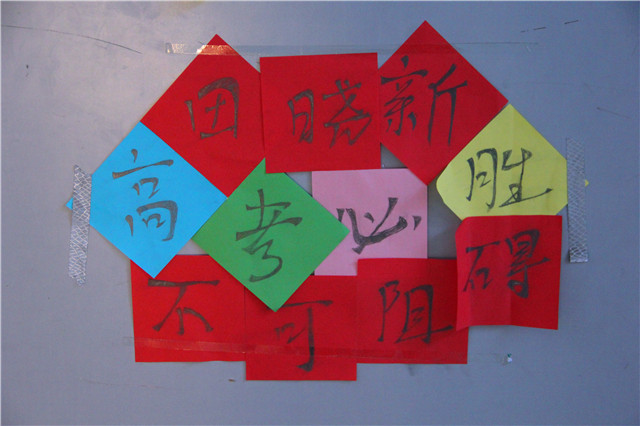 田晓新
高考必胜
不可阻碍